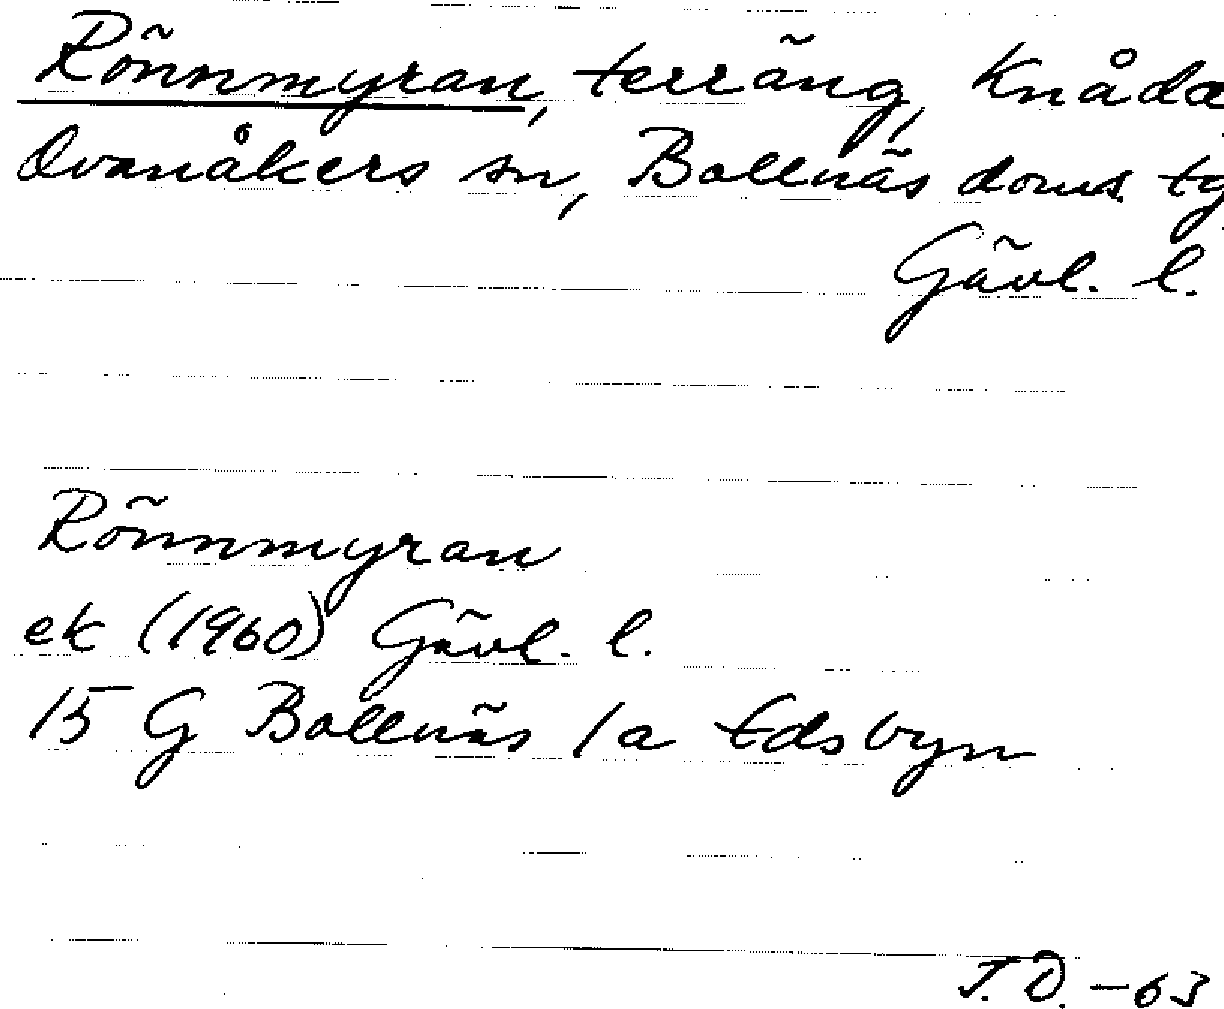 Rönnmyran, terräng, Knåda
Ovanåkers sn, Bollnäs doms. tg
Gävl. l.
Rönnmyran
ek (1960) Gävl. l.
15 G Bollnäs 1a Edsbyn
J. D. -63